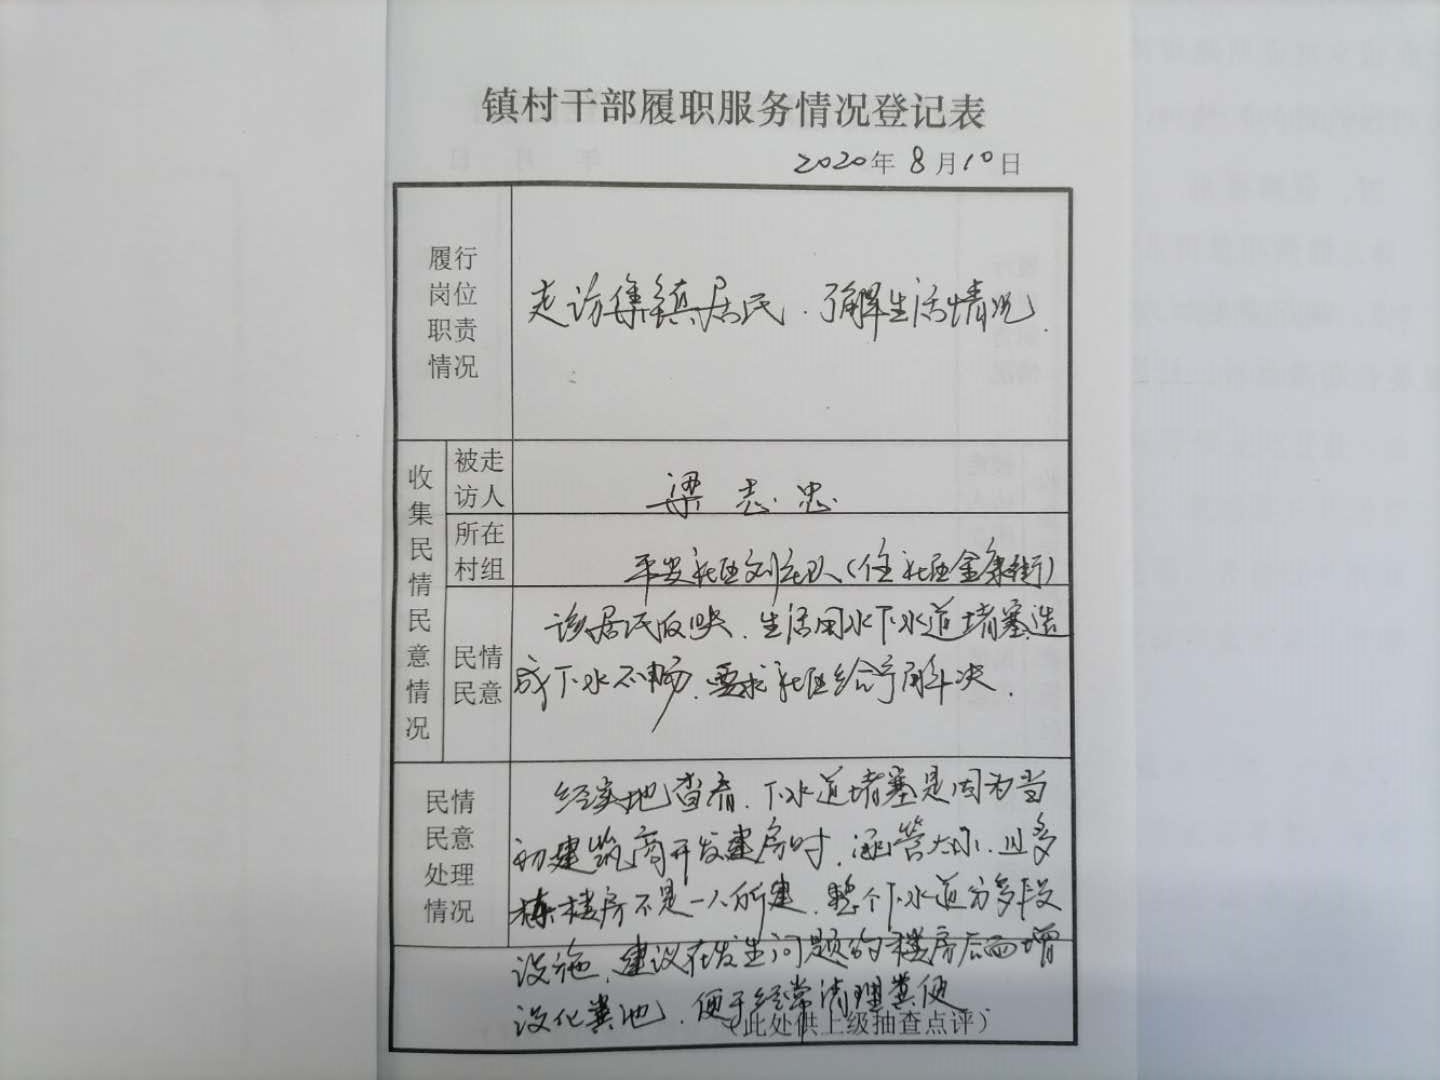 镇村干部履职服务情况登记表
2020年8月10日
履行
岗位
职责
情况
走访集镇居民.了解生活情况.
收集民情民意情况
被走
访人
梁志忠
所在
村组
平安社区刘庄队(住社区金康街)
民情
民意
该居民反映、生活用水下水道堵塞造
成下水不畅.要求社区给予解决.
民情
民意
处理
情况
经实地查看.下水道堵塞是因为当
初建筑商开发建房时,涵管太小.且多
栋楼房不是一人所建.整个下水道分多段
设施,建议在发生问题的楼房后面增
设化粪池.便于经常清理粪便
(此处供上级抽查点评)